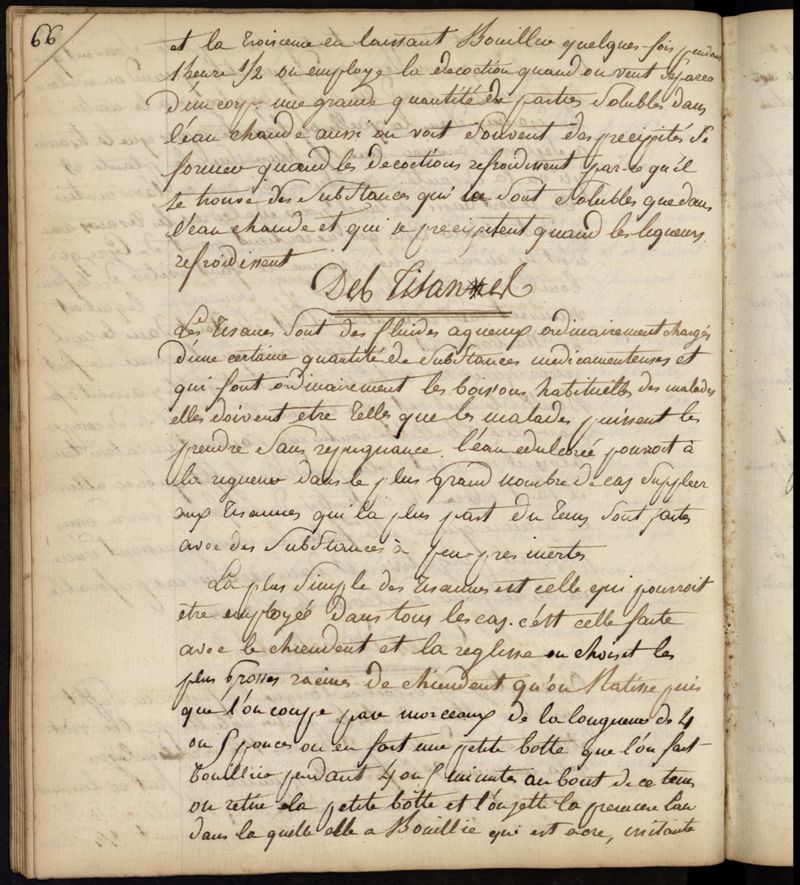 66
et la troisieme en laissant Bouillir quelques fois pendant
1 heure 1/2 on employe la decoction quand on veut separer
d'un corp une grande quantité de parties Solubles dans
l'eau chaude aussi on voit souvent des precipités se
former quand les decoctions refroidissent par ce qu'il
se trouve des substances qui ne sont solubles que dans
l'eau chaude et qui se precipitent quand les liqueurs
refroidissent
Des Tisannes
Les Tisanes sont des fluides aqueux ordinairement chargés
d'une certaine quantité de substances medicamenteuses et
qui font ordinairement les boissons habituelles des malades
elles doivent etre telles que les malades puissent les
prendre sans repugnance. l'eau edulcorée pourroit à
la rigueur dans le plus grand nombre de cas suppleer
aux Tisannes qui la plus part du tems sont faites
avec des substances à peu pres inertes
La plus simple des Tisannes est celle qui pourroit
etre employée dans tous les cas. c'est celle faite
avec le chiendent et la reglisse on choisit les
plus grosses racines de chiendent qu'on Ratisse puis
que l'on coupe par morceaux de la longueur de 4
ou 5 pouces on en fait une petite botte que l'on fait
bouillir pendant 4 ou 5 minutes au bout de ce tems
on retire la petite botte et l'on jette la premiere Eau
dans la quelle elle a Bouillie qui est acre, irritante